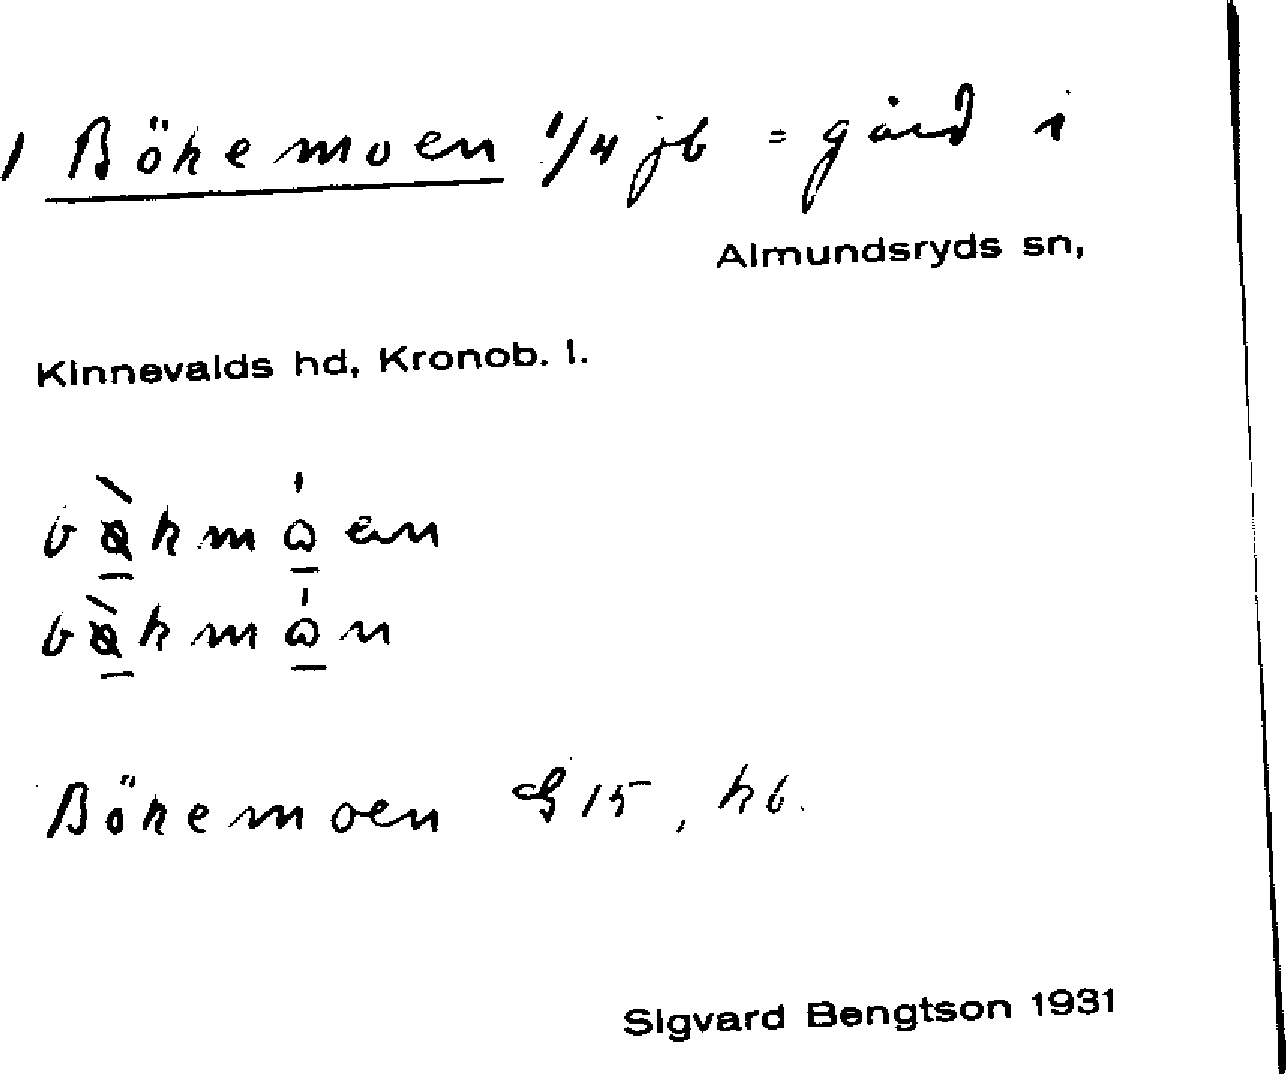 1 Bökemoen 1/4 jb = gård i
Almundsryds sn,
Kinnevalds hd, Kronob. l.
Bökemoen G 15, kb.
Sigvard Bengtson 1931